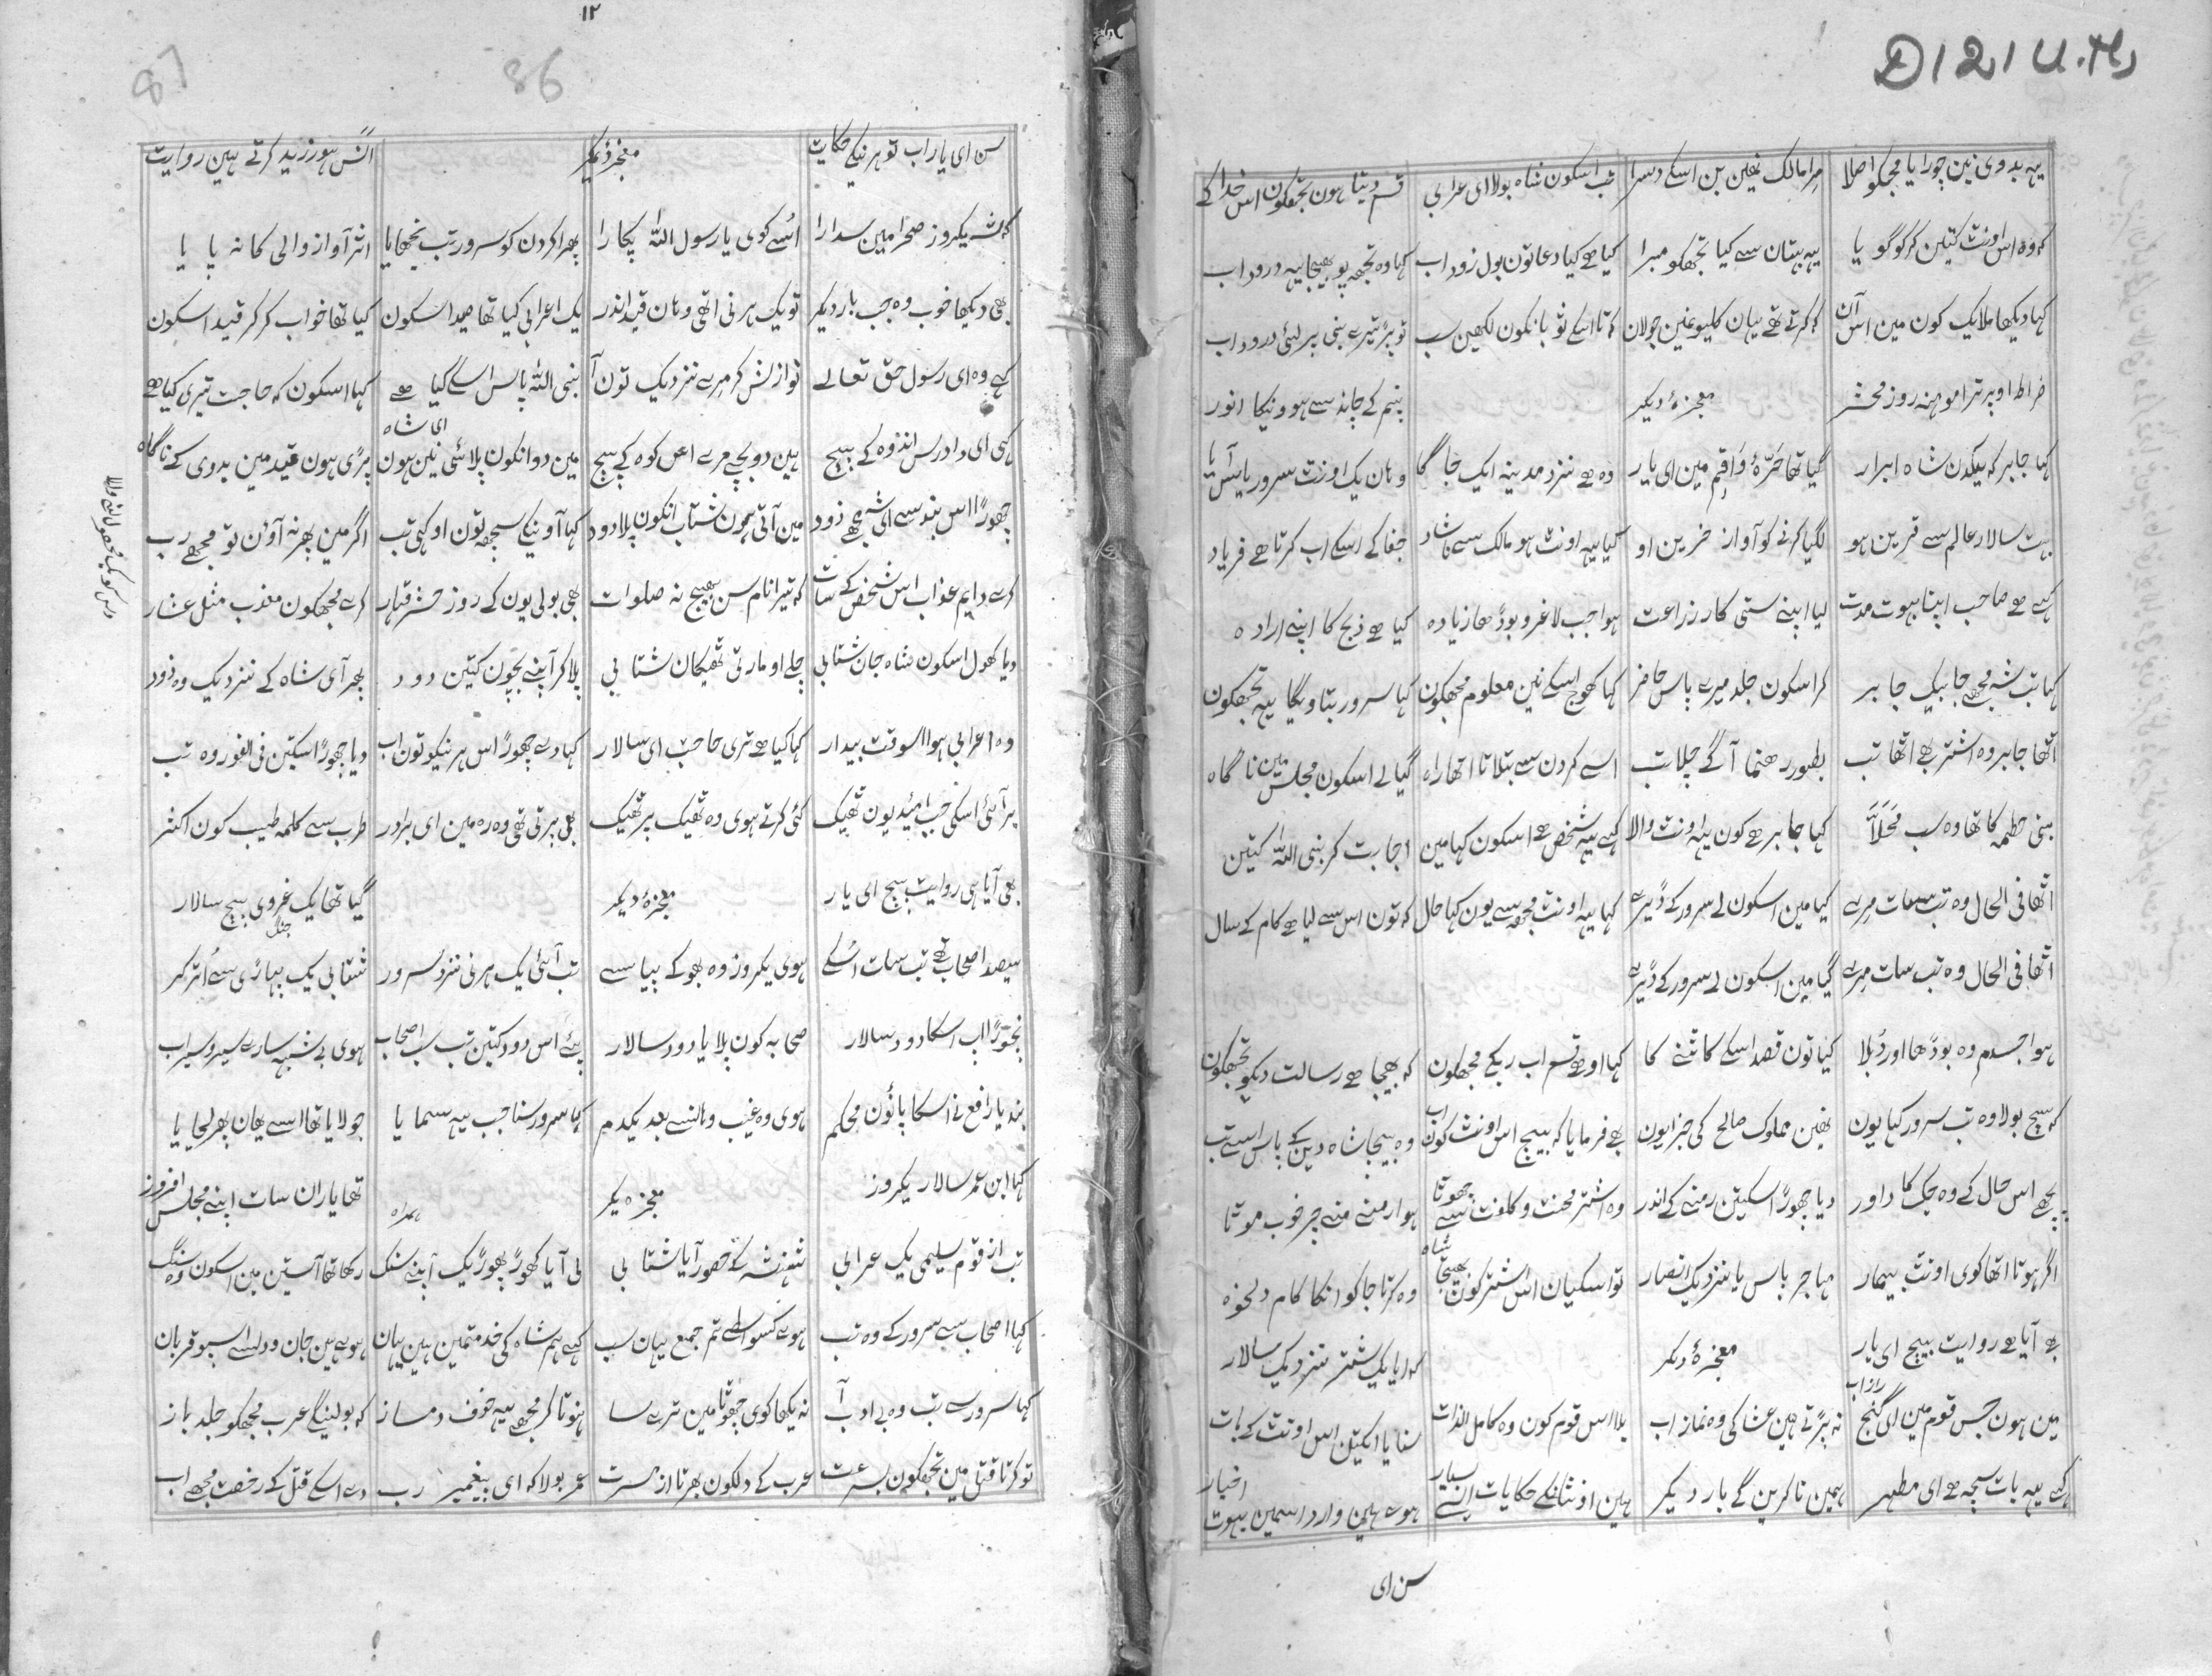 D121 U.Ms
یہہ بدوی نین چورایا مجکو اصلا مرا مالک نھین بن اسکے دسرا تب اسکون شاہ بولا ای عرابی قسم دیتا ہون تجھکون اس خدا کے
کہ وہ اس اونٹ کتین کر کو گویا یہہ بہتان سے کیا تجھکو مبرا کیا ہے کیا دعا تون بول زود اب کہا وہ تجھہ پو بھیجا یہہ درود اب
کہا دیکھا ملایک کون مین اس آن کہ کرتے تھے بیان کلیو غین جولان کہ تا اسکے ثوبانکون لکھین سب تو پڑ تیرے نبی پر لئی درود اب
صراط اوپر ترا موہنہ روز محشر معجزۂ دیکر پنم کے چاند سے ہوونیکا انور
کہا جابر کہ یکدن شاہ ابرار گیا تھا حَرّۂ وَاقِم مین ای یار وہ ہے نزد مدینہ ایک جاگا وہان یک اونٹ سرور پاس آیا
بہت سالار عالم سے قرین ہو لگیا کرنے کو آواز حزین او کیا یہہ اونٹ ہو مالک سے ناشاد جفا کے اسکے اب کرتا ہے فریاد
کہے ہے صاحب اپنا بہوت مدت لیا اپنے ستی کار زراعت ہوا جب لاغر و بوڈھا زیادہ کیا ہے ذبح کا اپنے ارادہ
کہا تب شہ مجھے جا بیک جابر کر اسکون جلد میرے پاس حاضر کہا کھوج اسکے نین معلوم مجھکون کہا سرور بتاویگا یہہ تجھکون
اٹھا جابر وہ اشتر بھے اٹھا تب بطور رھنما آگے چلا تب اسے کردن سے بتلاتا اتھا راہ گیا لے اسکون مجلس مین ناگاہ
بنی حطمہ کا تھا وہ سب مَحَلَّا کہا جابر ہے کون یہہ اونٹ والا کہے یہہ شخص ہے اسکون کہا مین اجابت کر نبی اللہ کتین
اٹھا فی الحال وہ تب سات مرے کیا مین اسکون لے سرور کے ڈیرے کہا یہہ اونٹ مجھہ سے یون کہا حال کہ تون اس سے لیا ہے کام کے سال
اٹھا فی الحال وہ تب سات مرے گیا مین اسکون لے سرور کے ڈیرے
ہوا جسدم وہ بوڈھا اور دُبلا کیا تون قصد اسکے کاٹنے کا کہا او ہے قسم اب ربکے مجھکون کہ بھیجا ہے رسالت دیکو تجھکون
کہ سچ بولا وہ تب سرور کہا یون نھین مملوک صالح کی جزا یون بھے فرمایا کہ بیچ اس اونٹ کون اب وہ بیچا شاہ دین کے پاس اسے تب
پچھے اس حال کے وہ جک کا داور دیا چھوڑ اسکتین رمنے کے اندر وہ اشتر محنت و کلفت سے چھوٹا ہوا رمنے منے چر خوب موٹا
اگر ہوتا اتھا کوی اونٹ بیمار مہاجر پاس یا نزدیک انصار تو اسکیان اس اشتر کون بھیجتا شاہ وہ کرتا جا کو انکا کام دلخوہ
بھے آیا ہے روایت بیچ ای یار معجزۂ دیکر کہ آیا یک شتر نزدیک سالار
مین ہون جس قوم مین ای گنج راز اب نہ پڑتے ھین عشا کی وہ نماز اب بلا اس قوم کون وہ کامل الذات سنایا انکتین اس اونٹ کے بات
کہے یہہ بات سچہ ہے ای مطہر ہمین نا کرین گے بار دیکر ہین اونٹانکے حکایات اپنے بسیار ہوے ہین وارد اسمین بہوت اخبار
سن ای
۱۲
86
87
سن ای یار اب تو ہرنیکے حکایت معجزۂ دیکر انس ہور زید کرتے ہین روایت
کہ شہ یکروز صحرا مین سدارا اسُے کوی یا رسول اللہ پکارا پھرا کردن کو سرور تب بچھایا اثر آواز والی کا نہ پایا
بھی دیکھا خوب وہ جب بار دیکر تو یک ہرنی اتھی وہان قید اندر یک اعرابی کیا تھا صید اسکون کیا تھا خواب کر کر قید اسکون
کہے وہ ای رسول حق تعالے نوازش کر مرے نزدیک تون آ نبی اللہ پاس اسکے گیا ہے کہا اسکون کہ حاجت تیری کیا ہے
کہی ای دادرس اندوہ کے بیچ ہین دو بچے مرے اس کوہ کے بیچ مین دوانکون پلائئی نین ہون ای شاہ پڑی ہون قید مین بدوی کے ناگاہ
چھوڑ اس بند سے ای شہ مجھے زود مین آتی ہون شتاب انکون پلا دود کہا آونیکے سچھہ تون او کہی تب اگر مین پھر نہ آؤن تو مجھے رب
کرے دایم عذاب اس شخص کے سات کہ تیرا نام سن بھیجے نہ صلوات بھی بولی یون کے روز حشر قہار کرے مجھکون معذب مثل عشار
دیا کھول اسکون شاہ جان شتابی چلے او مارتی ٹھیکان شتابی پلا کر اپنے بچون کتین دود پھر آی شاہ کے نزدیک وہ زود
وہ اعرابی ہوا اسوقت بیدار کہا کیا ہے تری حاجت ای سالار کہا دے چھوڑ اس ہرنیکو تون اب دیا چھوڑ اسکتین فی الفور وہ تب
بر آئی اسکی جب امید یون ٹھیک گئی کرتے ہوی وہ ٹھیک پر ٹھیک بھی پرتی تھی وہ رہ مین ای برادر طرب سے کلمہ طیب کون اکثر
بھی آیا ہی روایت بیچ ای یار معجزۂ دیکر گیا تھا یک غزوی بیچ سالار جنگ
سیصد اصحاب تھے تب سات اسُکے ہوی یکروز وہ بھوکے پیاسے تب آئی یک ہرنی نزد سرور شتابی یک پہاڑی سے اُتر کر
نچوڑا اب اسکا دود سالار صحابہ کون پلایا دود سالار پئے اس دود کتین تب سب اصحاب ہوی بے شبہہ سارے سیر و سیراب
بندیا رافع نے اسکا پاؤن محکم ہوی وہ غیب وہانسے بعد یکدم کہا سرور سنا جب یہہ سمایا جو لایا تھا اسے یھان پھر لیجایا
کہا ابن عمر سالار یکروز معجزہ دیکر تھا یاران سات اپنے مجلس افروز ہمراہ
تب از قوم سلیمی یک عرابی شہنشہ کے حضور آیا شتابی لی آیا کھوڑ پھوڑ یک اپنے سنک رکھا تھا آستین مین اسکون وہ سنگ
کہا اصحاب سے سرور کے وہ تب ہوے کسواسطے تم جمع یہان سب کہے ہم شاہ کی خدمتمین ہین یہان ہوے ہین جان و دلسے اسپو قربان
کہا سرور سے تب وہ بے ادب آ نہ یکھا کوی جھوٹا مین ترے سا ہنوتا کر مجھے یہہ خوف دمساز کہ بولینگے عرب مجھکو جلد باز
تو کرتا قتل مین تجھکون بسرعت عرب کے دلکون بھرتا از مسرت عمر بولا کہ ای پیغمبر رب دے اسکے قتل کے رخصت مجھے اب